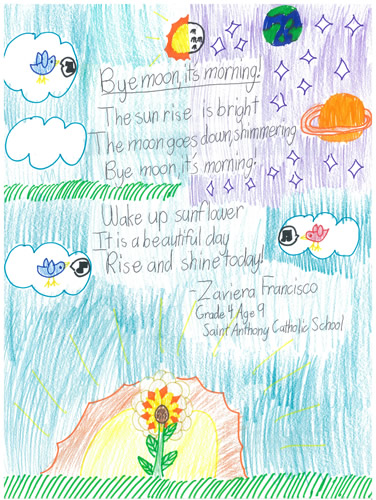 Bye moon, it's morning!
The sun rise is bright
The moon goes down, shimmering
Bye moon, it's morning.
Wake up sunflower
It is a beautiful day
Rise and shine today!
-Zaviera Francisco
Grade 4 Age 9
Saint Anthony Catholic School